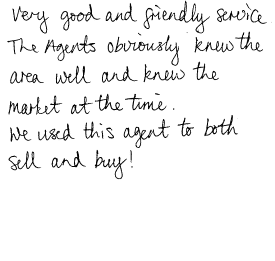 Very good and friendly service
The Agents obviously knew the
area well and knew the
market at the time.
We used this agent to both
sell and buy!